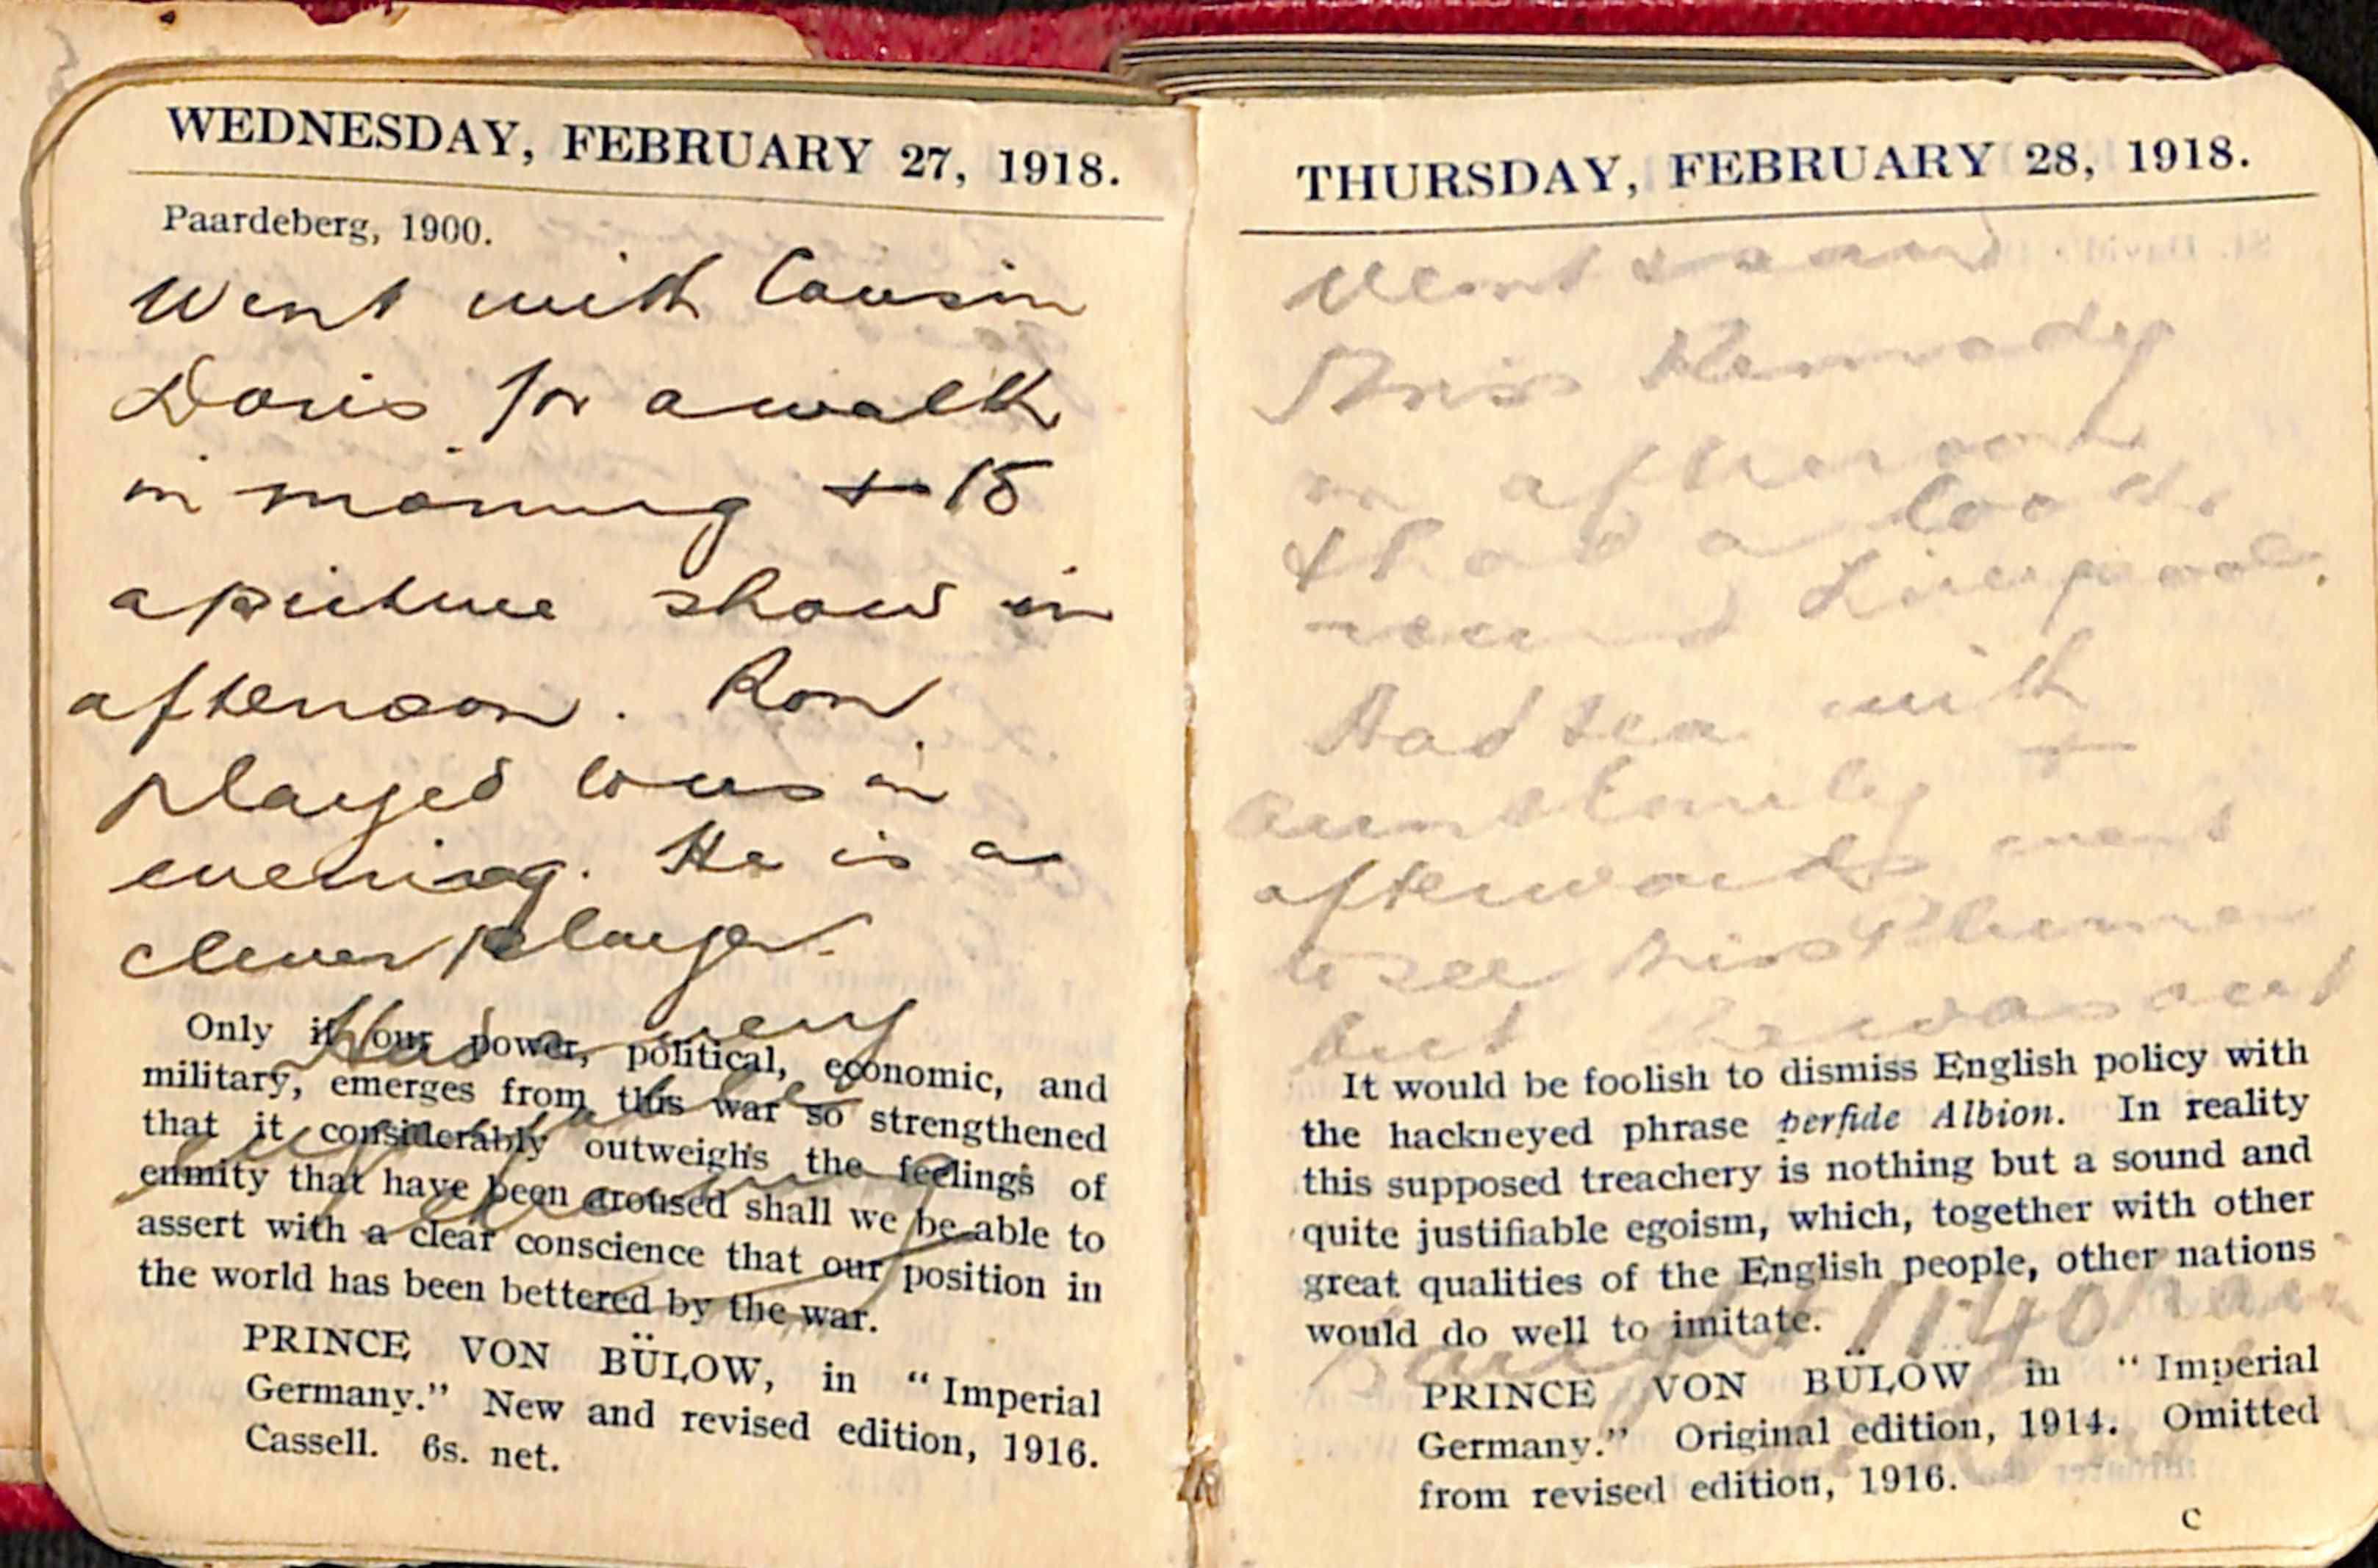 WEDNESDAY, FEBRUARY 27, 1918.
Paardeberg, 1900.
Went with Cousin
Doris for a walk
in morning + to
a picture show in
afternoon. Ron
played to us in
evening. He is a
clever player.
Had a very
enjoyable
evening
Only if our power, political, economic, and
military, emerges from this war so strengthened
that it considerably outweighs the feelings of
enmity that have been aroused shall we be able to
assert with a clear conscience that our position in
the world has been bettered by the war.
PRINCE VON BÜLOW, in "Imperial
Germany." New and revised edition, 1916.
Cassell. 6s. net.
THURSDAY, FEBRUARY 28, 1918.
Went
Miss
in afternoon
+ had a look
round Liverpool.
Had tea with
Aunt Emily +
afterwards went
to see Miss
but he was out
Caught 11.40
It would be foolish to dismiss English policy with
the hackneyed phrase perfide Albion. In reality
this supposed treachery is nothing but a sound and
quite justifiable egoism, which, together with other
great qualities of the English people, other nations
would do well to imitate.
PRINCE VON BÜLOW in "Imperial
Germany." Original edition, 1914. Omitted
from revised edition, 1916.
C